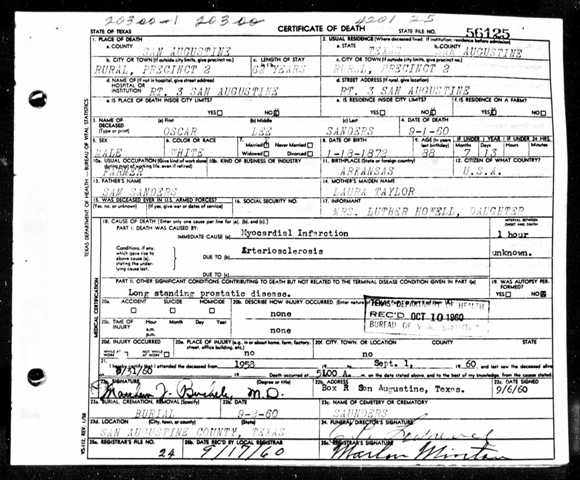 20300-1 20300 4201 25
STATE OF TEXAS CERTIFICATE OF DEATH STATE FILE NO. 56125
1. PLACE OF DEATH 2. USUAL RESIDENCE (Where deceased lived. If institution: residence before admission)
a. COUNTY SAN AUGUSTINE a. STATE TEXAS SAN AUGUSTINE
b. CITY OR TOWN (If outside city limits, give precinct no.) c. LENGTH OF STAY b. CITY OR TOWN (If outside city limits, give precinct no.)
RURAL, PRECINCT 2 YEARS RURAL, PRECINCT 2
d. NAME OF (If not in hospital, give street address) HOSPITAL OR INSTITUTION d. STREET ADDRESS (If rural, give location)
RT. 3 SAN AUGUSTINE RT. 3 SAN AUGUSTINE
e. IS PLACE OF DEATH INSIDE CITY LIMITS? e. IS RESIDENCE INSIDE CITY LIMITS? f. IS RESIDENCE ON A FARM?
YES NO YES NO YES NO
3. NAME OF DECEASED (Type or print) (a) First (b) Middle (c) Last 4. DATE OF DEATH
OSCAR LEE SANDERS 9-1-60
5. SEX 6. COLOR OR RACE 7. Married Never Married Widowed Divorced 8. DATE OF BIRTH 9. AGE (In years last birthday) IF UNDER 1 YEAR IF UNDER 24 HRS.
MALE WHITE 88 7 13
10a. USUAL OCCUPATION (Give kind of work done during most of working life, even if retired) 10b. KIND OF BUSINESS OR INDUSTRY 11. BIRTHPLACE (State or foreign country) 12. CITIZEN OF WHAT COUNTRY?
FARMER ARKANSAS U.S.A.
13. FATHER'S NAME 14. MOTHER'S MAIDEN NAME
SAM SANDERS LAURA TAYLOR
15. WAS DECEASED EVER IN U.S. ARMED FORCES? 16. SOCIAL SECURITY NO. 17. INFORMANT
(Yes, no, or unknown) (If yes, give war or dates of service) MRS. LUTHER HOWELL, DAUGHTER
18. CAUSE OF DEATH (Enter only one cause per line for (a), (b), and (c).) INTERVAL BETWEEN ONSET AND DEATH
PART I. DEATH WAS CAUSED BY:
IMMEDIATE CAUSE (a) Myocardial Infarction 1 hour
Conditions, if any, which gave rise to above cause (a), stating the underlying cause last.
DUE TO (b) Arteriosclerosis unknown.
DUE TO (c)
PART II. OTHER SIGNIFICANT CONDITIONS CONTRIBUTING TO DEATH BUT NOT RELATED TO THE TERMINAL DISEASE CONDITION GIVEN IN PART I(a) 19. WAS AUTOPSY PERFORMED?
Long standing prostatic disease. YES NO
20a. ACCIDENT SUICIDE HOMICIDE 20b. DESCRIBE HOW INJURY OCCURRED.
none
TEXAS DEPARTMENT OF HEALTH
REC'D OCT 10 1960
BUREAU OF
20c. TIME OF INJURY Hour Month Day Year
none
20d. INJURY OCCURRED 20e. PLACE OF INJURY (e.g., in or about home, farm, factory, street, office building, etc.) 20f. CITY, TOWN, OR LOCATION COUNTY STATE
WHILE AT WORK NOT WHILE AT WORK no no
21. I hereby certify that I attended the deceased from 1953 Sept. 1, 60
8/31/60 Death occurred at 5:00 A. m. on the date stated above, and to the best of my knowledge, from the causes stated.
22a. SIGNATURE (Degree or title) 22b. ADDRESS 22c. DATE SIGNED
M.D. Box R San Augustine, Texas. 9/6/60
23a. BURIAL, CREMATION, REMOVAL (Specify) 23b. DATE 23c. NAME OF CEMETERY OR CREMATORY
BURIAL SAUNDERS
23d. LOCATION (City, town, or county) (State) 24. FUNERAL DIRECTOR'S SIGNATURE
SAN AUGUSTINE COUNTY, TEXAS
25a. REGISTRAR'S FILE NO. 25b. DATE REC'D BY LOCAL REGISTRAR 25c. REGISTRAR'S SIGNATURE
24 9/17/60
TEXAS DEPARTMENT OF HEALTH — BUREAU OF VITAL STATISTICS
MEDICAL CERTIFICATION